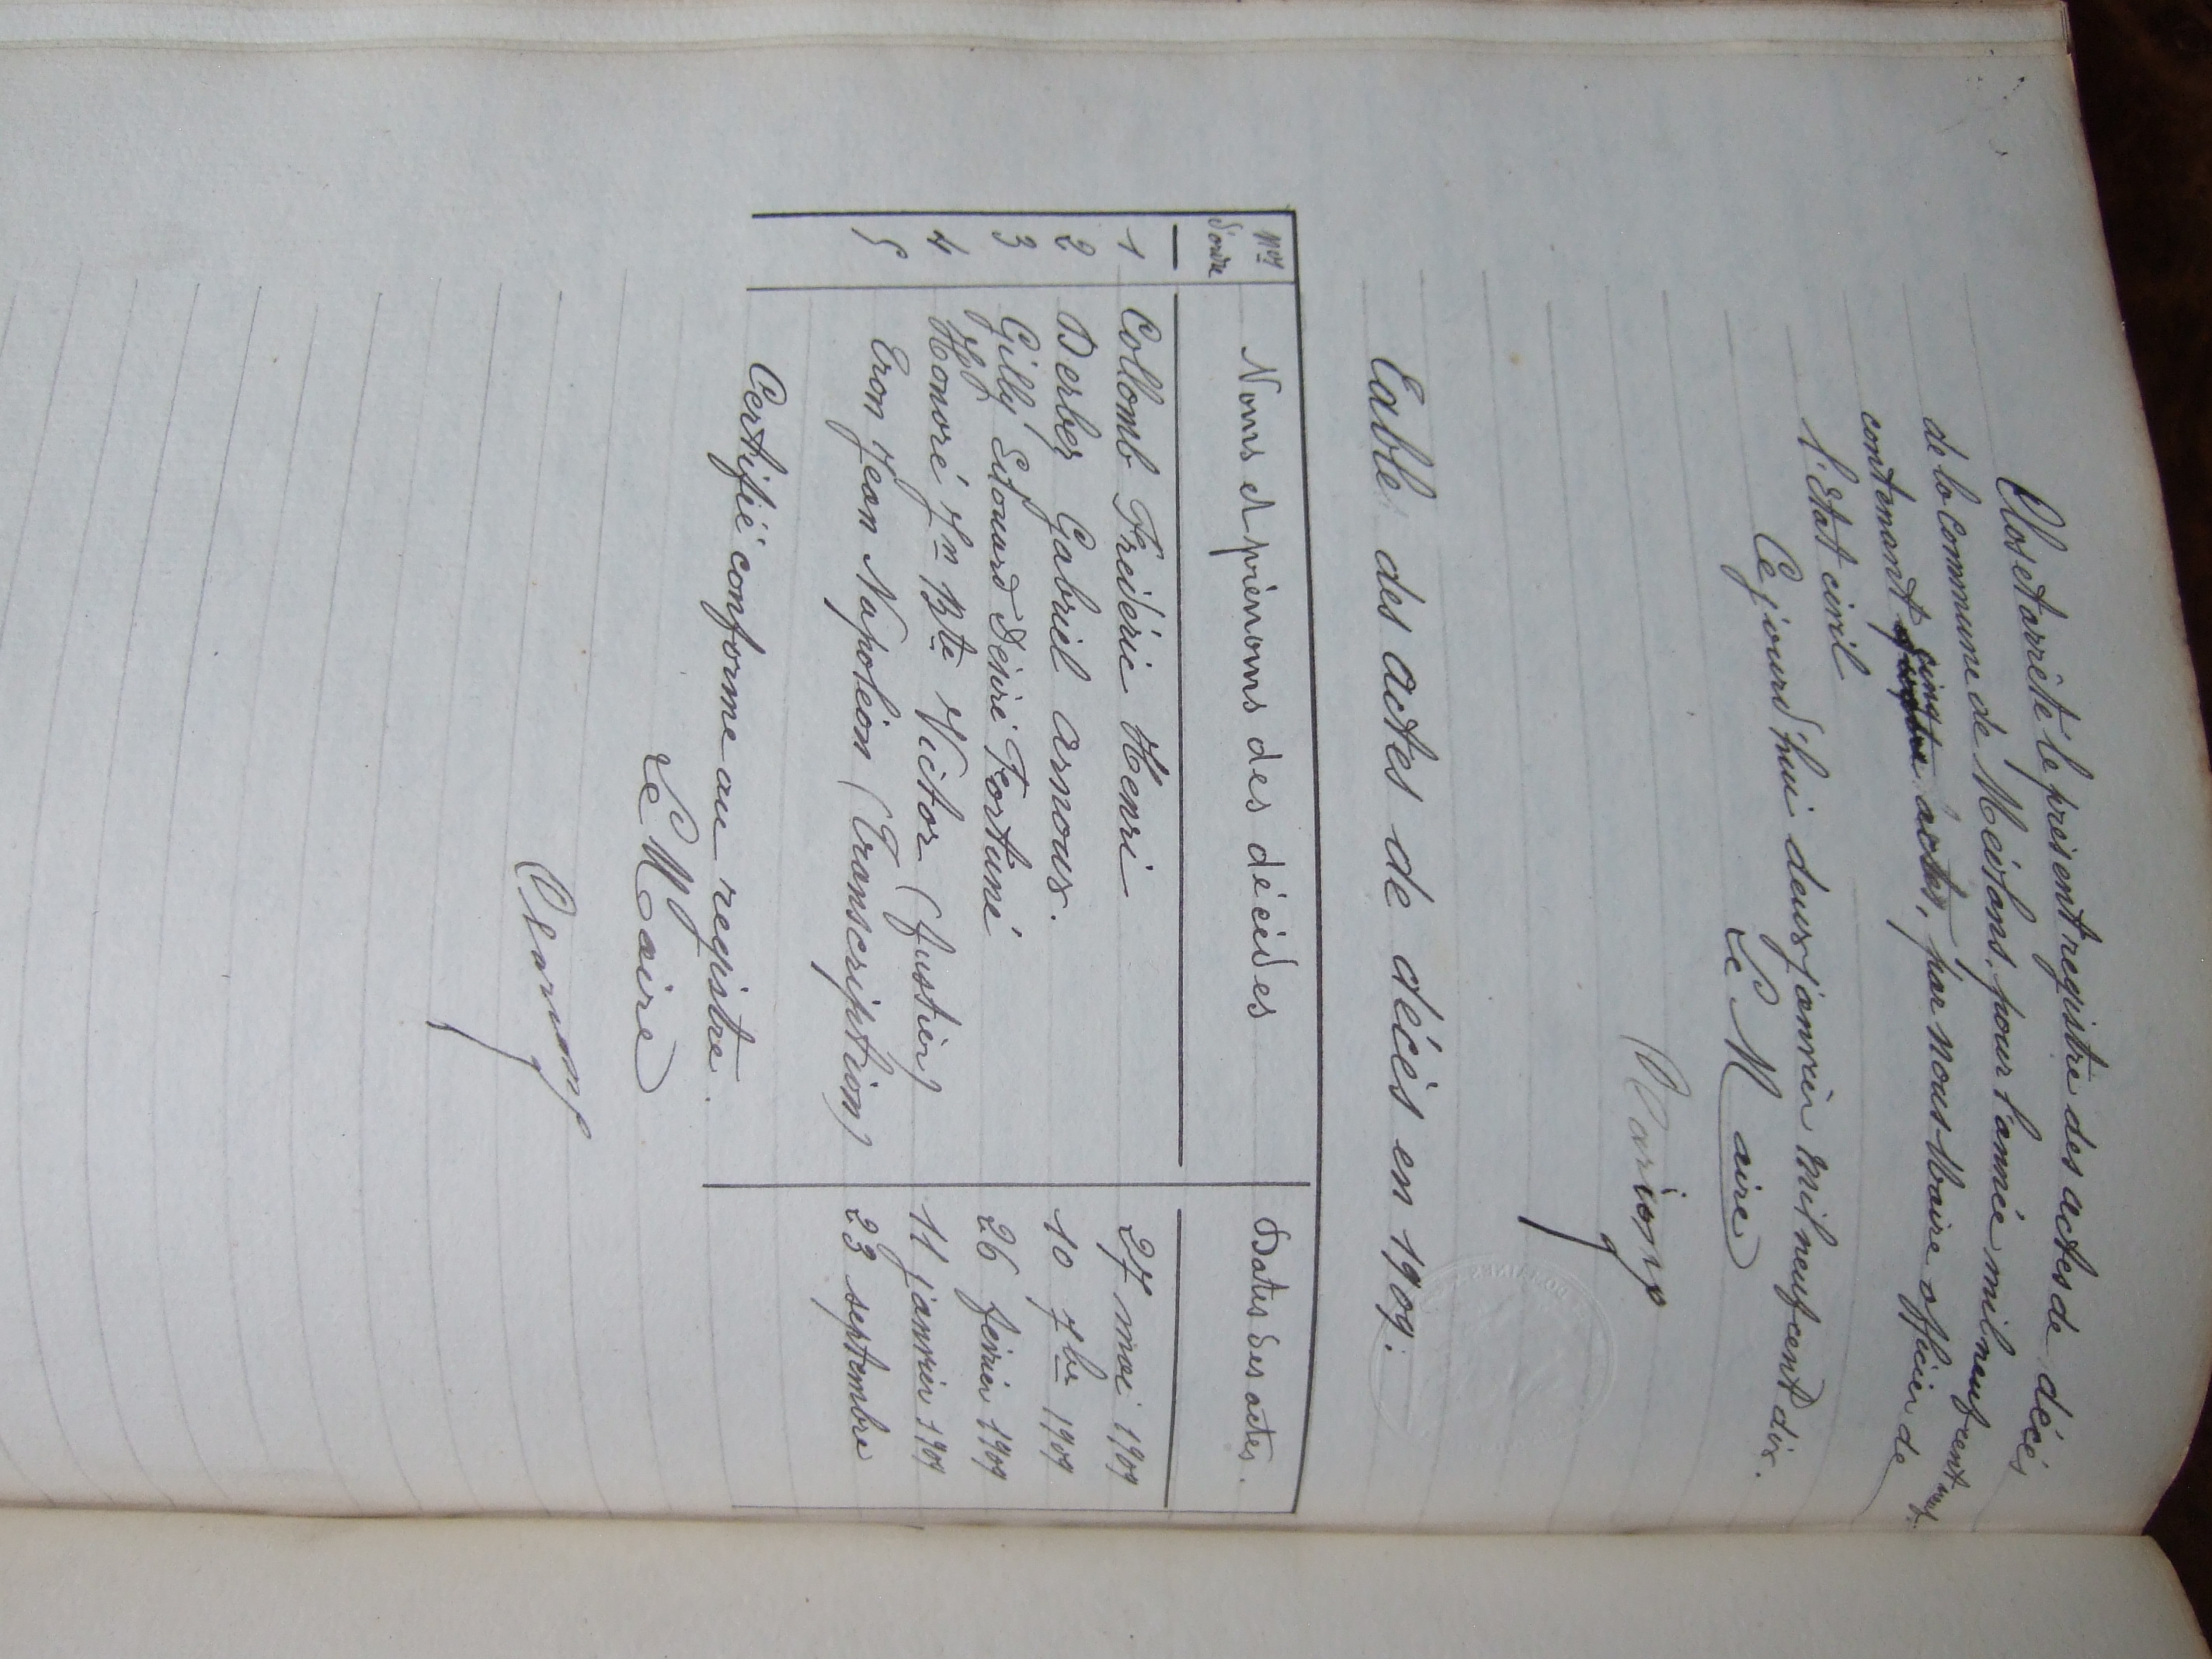 Clos et arrêté le présent registre des actes de décès
de la commune de Méolans, pour l'année mil neuf cent neuf
contenant cinq actes, par nous Maire officier de
l'Etat civil
Ce jourd'hui deux janvier mil neuf cent dix.
Le Maire
Table des actes de décès en 1909.
Nos d'ordre Noms et prénoms des décédés Dates des actes.
1 Collomb Frédéric Henri 27 mai 1909
2 Derbez Gabriel arnoux. 10 7bre 1909
3 Gilly Edouard Désiré Fortuné 26 février 1909
4 Honoré Jn Bte Victor (fustier) 11 janvier 1909
5 Tron Jean Napoléon (Transcription) 23 septembre
Certifié conforme au registre.
Le Maire